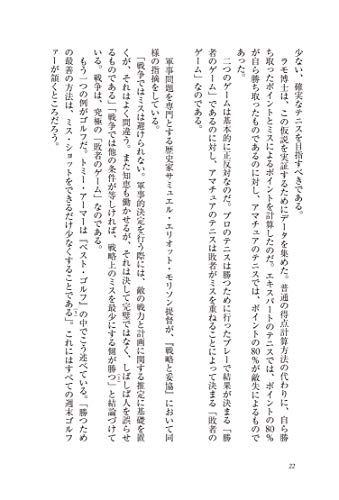 少ない、確実なテニスを目指すべきである。
ラモ博士は、この仮説を実証するためにデータを集めた。普通の得点計算方法の代わりに、自ら勝
ち取ったポイントとミスによるポイントを計算したのだ。エキスパートのテニスでは、ポイントの80%
が自ら勝ち取ったものであるのに対し、アマチュアのテニスでは、ポイントの80%が敵失によるもので
あった。
二つのゲームは基本的に正反対なのだ。プロのテニスは勝つために行ったプレーで結果が決まる「勝
者のゲーム」であるのに対し、アマチュアのテニスは敗者がミスを重ねることによって決まる「敗者の
ゲーム」なのである。
軍事問題を専門とする歴史家サミュエル・エリオット・モリソン提督が、『戦略と妥協』において同
様の指摘をしている。
「戦争ではミスは避けられない。軍事的決定を行う際には、敵の戦力と計画に関する推定に基礎を置
くが、それはよく間違う。また知恵も働かせるが、それは決して完璧ではなく、しばしば人を誤らせ
るものである」「戦争では他の条件が等しければ、戦略上のミスを最少にする側が勝つ」と結論づけて
いる。戦争は、究極の「敗者のゲーム」なのである。
もう一つの例がゴルフだ。トミー・アーマーは『ベスト・ゴルフ』の中でこう述べている。「勝つため
の最善の方法は、ミス・ショットをできるだけ少なくすることである」。これにはすべての週末ゴルフ
ァーが頷くところだろう。
22